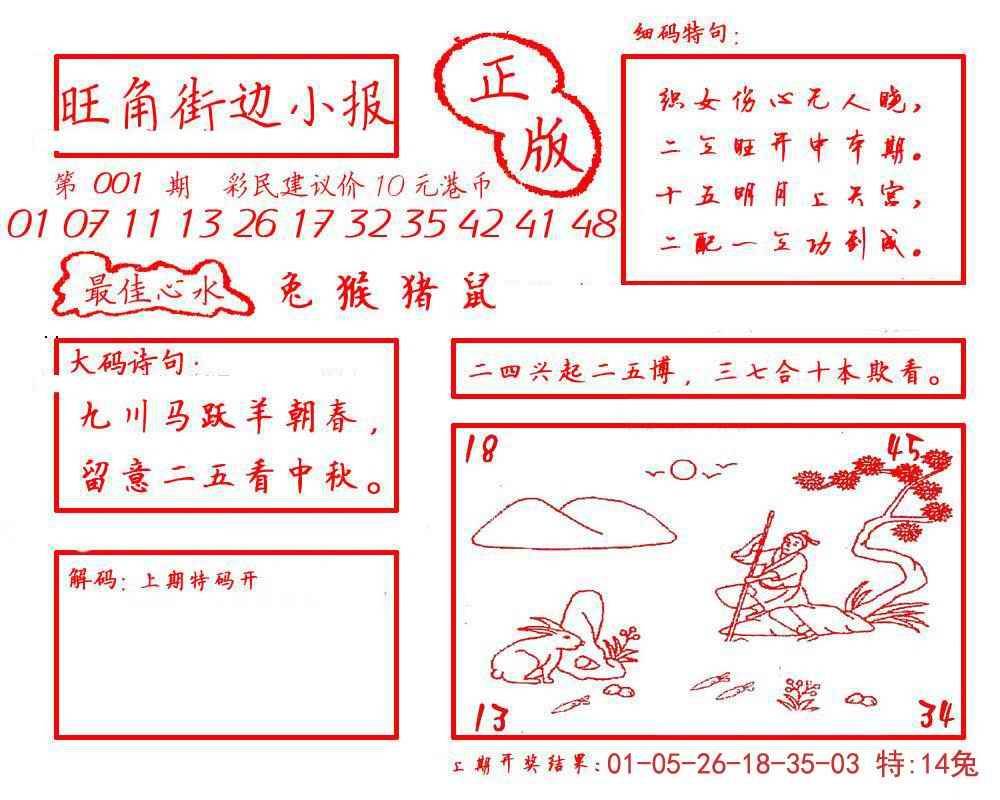 细码特句：
旺角街边小报
正版
织女伤心无人晓，
二立旺开中本期。
十五明月上天宫，
二配一立功到成。
第 001 期 彩民建议价10元港币
01 07 11 13 26 17 32 35 42 41 48
最佳心水 兔猴猪鼠
大码诗句：
九川马跃羊朝春，
留意二五看中秋。
二四兴起二五博，三七合十本欺看。
18
45
解码：上期特码开
13
34
上期开奖结果：01-05-26-18-35-03 特:14兔